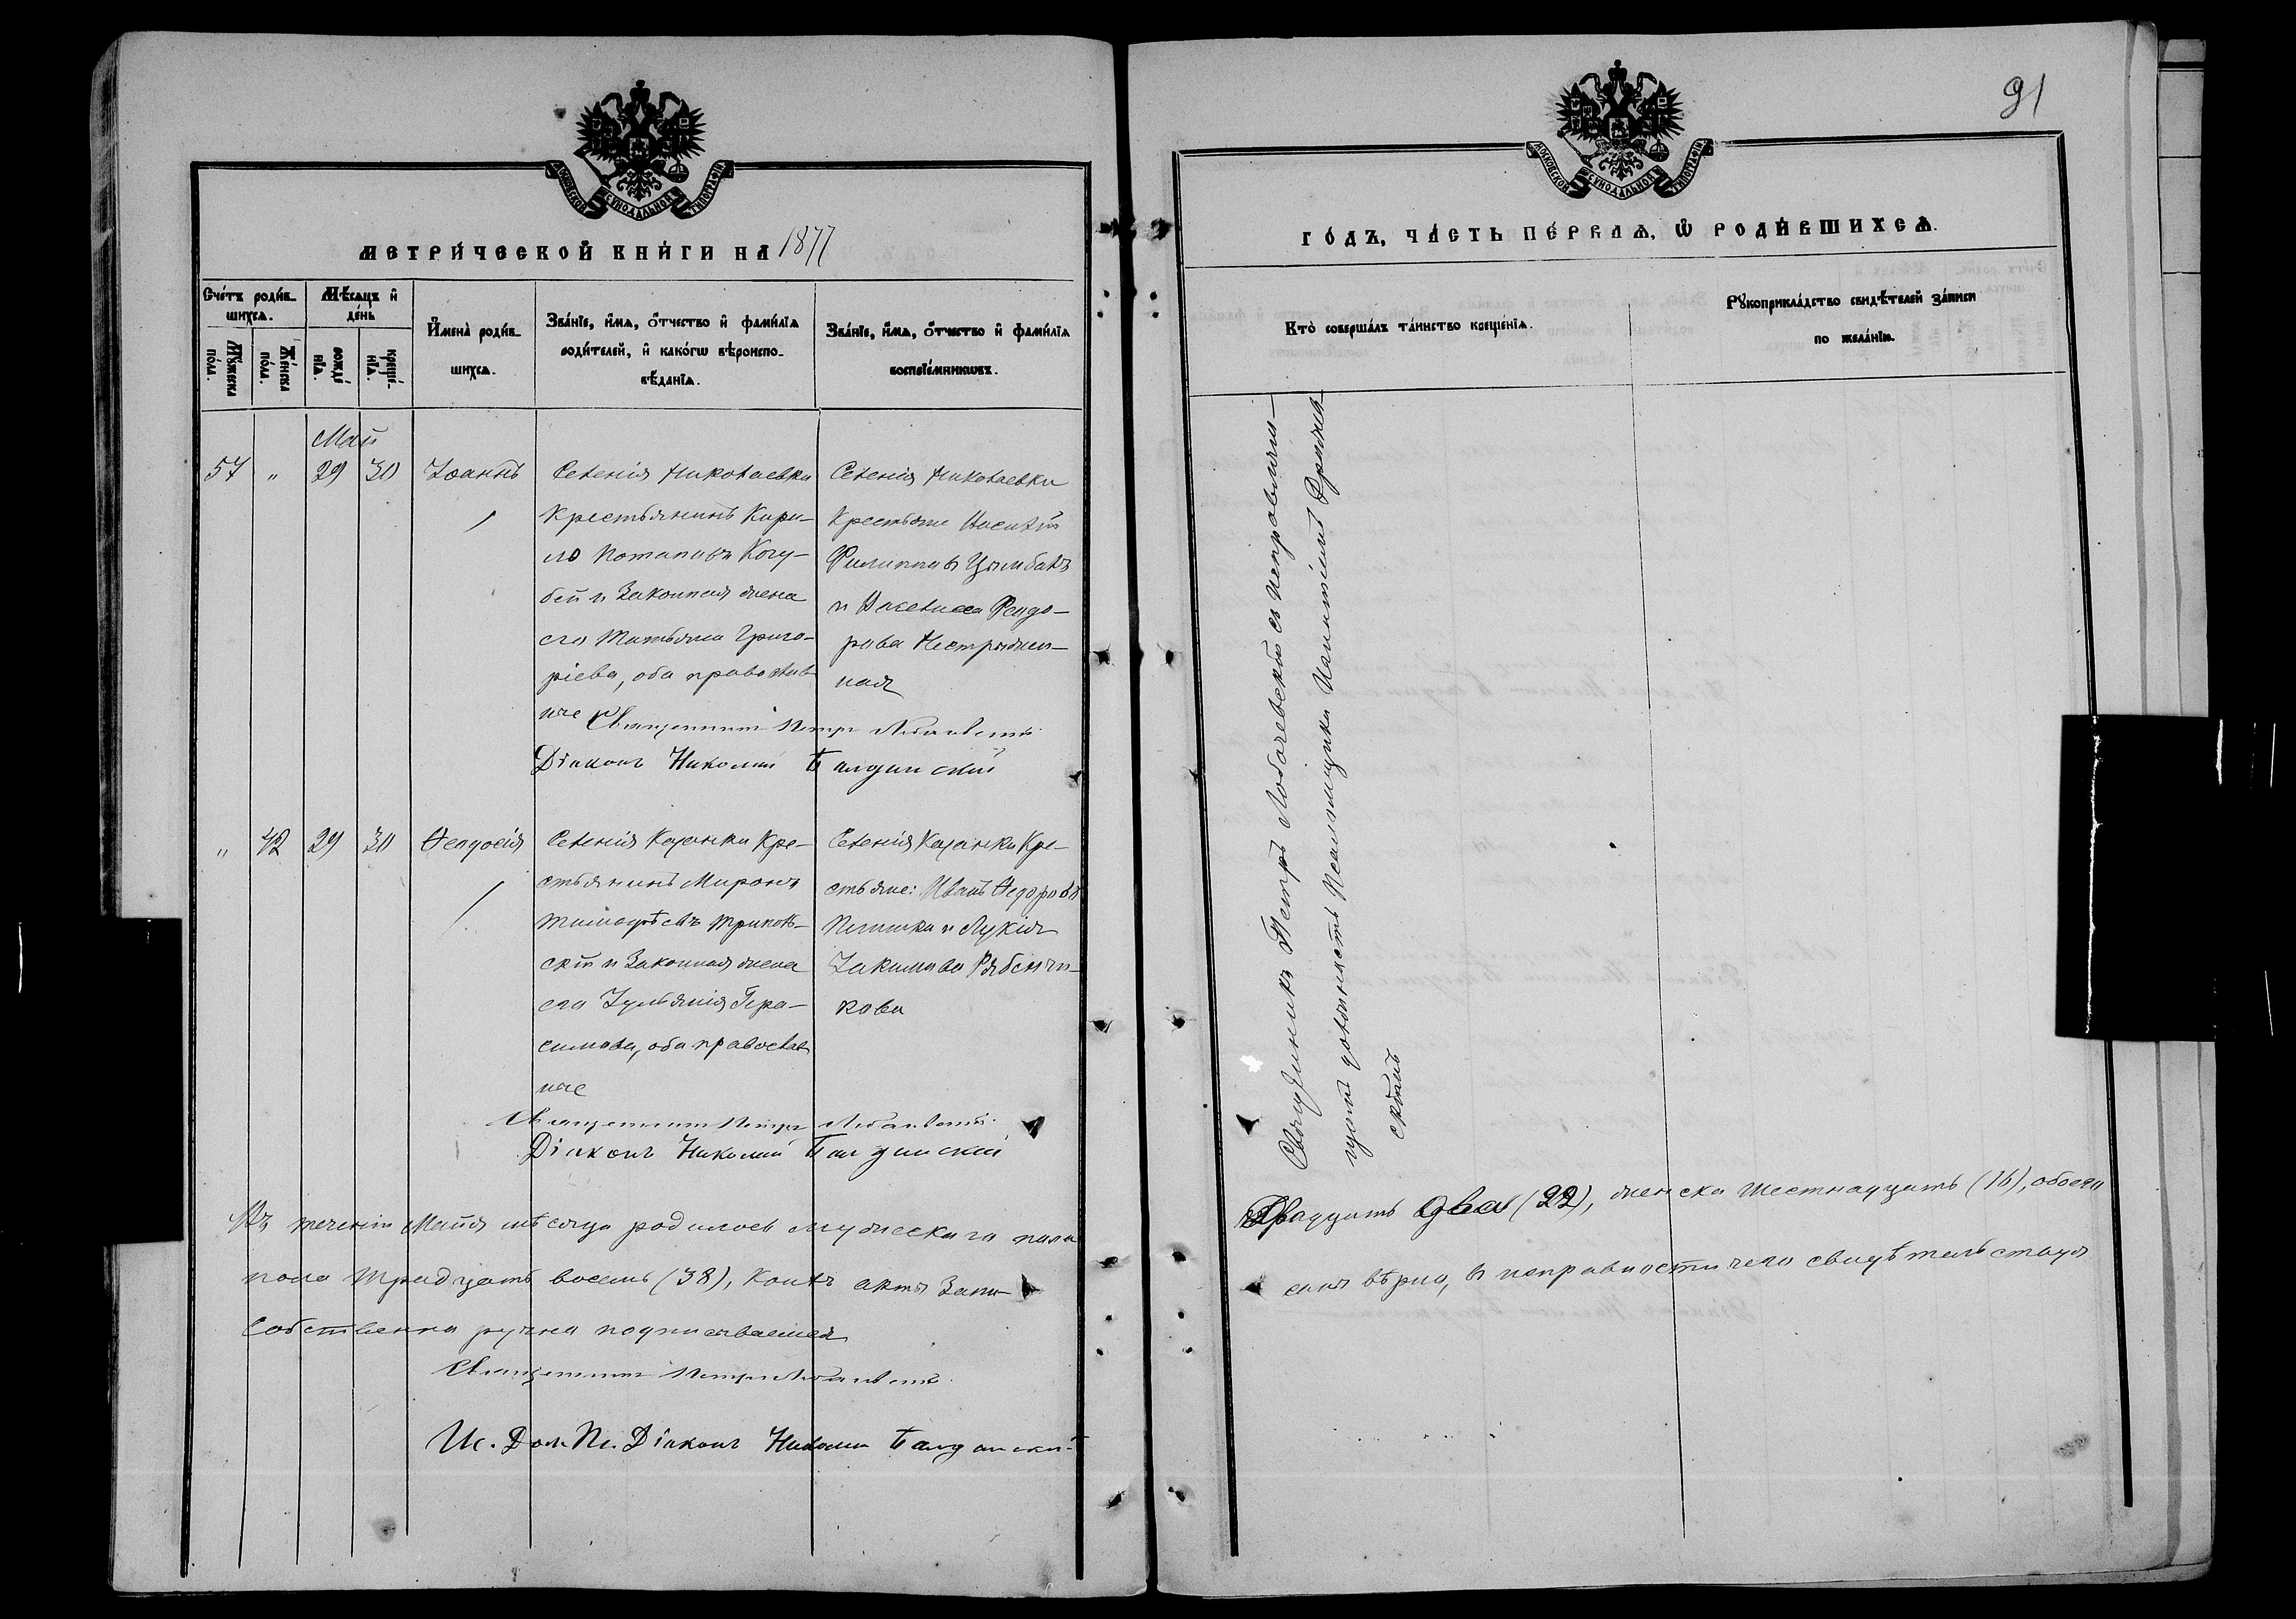 91
МОСКОВСКОЙ СУНОДАЛЬНОЙ ТИПОГРАФІИ
МЕТРИ́ЧЕСКОЙ КНИ́ГИ НА 1877
Сче́тъ роди́в-
шихсѧ.
Мѣ́сѧцъ и҆
де́нь
Мꙋ́жеска
по́ла.
Же́нска
по́ла.
рожде́
нїѧ.
креще́-
нїѧ.
И҆мена̀ роди́в-
шихсѧ.
Зва́нїе, и҆́мѧ, ѻ҆́тчество и҆ фами́лїѧ
роди́телей, и҆ како́гѡ вѣроиспо-
вѣ́данїѧ.
Зва́нїе, и҆́мѧ, ѻ҆́тчество и҆ фами́лїѧ
воспрїе́мникѡвъ.
Май
57 " 29 30 Іоаннъ
Селенія Николаевки
Крестьянинъ Кири-
ло Потаповъ Когу-
бей и законная жена
его Татьяна Григо-
ріева, оба православ
ные
Селенія Николаевки
Крестьяне
Филиповъ Цымбалъ
и Ѳеодо-
рова
ная
Священникъ Петръ Лобачевскій
Діаконъ Николай
" 42 29 30 Ѳеодосія
Селенія Казанки Кре-
стьянинъ Миронъ
Тимоѳѣевъ
скій и законная жена
его Іуліанія Гера-
симова, оба православ
ные
Селенія Казанки Кре-
стьяне: Иванъ Ѳедоровъ
и Лукія
Іакимова Рябсичи-
кова
Священникъ Петръ Лобачевскій
Діаконъ Николай
Въ теченіи Маія мѣсяца родилось мужескаго пола
пола тридцать восемь (38), коихъ актъ запи-
собственно ручно подписываемся
Священникъ Петръ Лобачевскій
Ис. Дол. Пс. Діаконъ Николай
МОСКОВСКОЙ СУНОДАЛЬНОЙ ТИПОГРАФІИ
ГО́ДЪ, ЧА́СТЬ ПЕ́РВАѦ, Ѡ҆ РОДИ́ВШИХСѦ.
Кто̀ соверша́лъ та́инство креще́нїѧ.
Рꙋкоприкла́дство свидѣ́телей за́писи
по жела́нїю.
Священникъ Петръ Лобачевскій съ исправляю-
щимъ должность Псаломщика
скимъ
Двадцать два (22), женска шестнадцать (16), обоего
сихъ вѣрно, въ исправности чего свидѣтельствуя